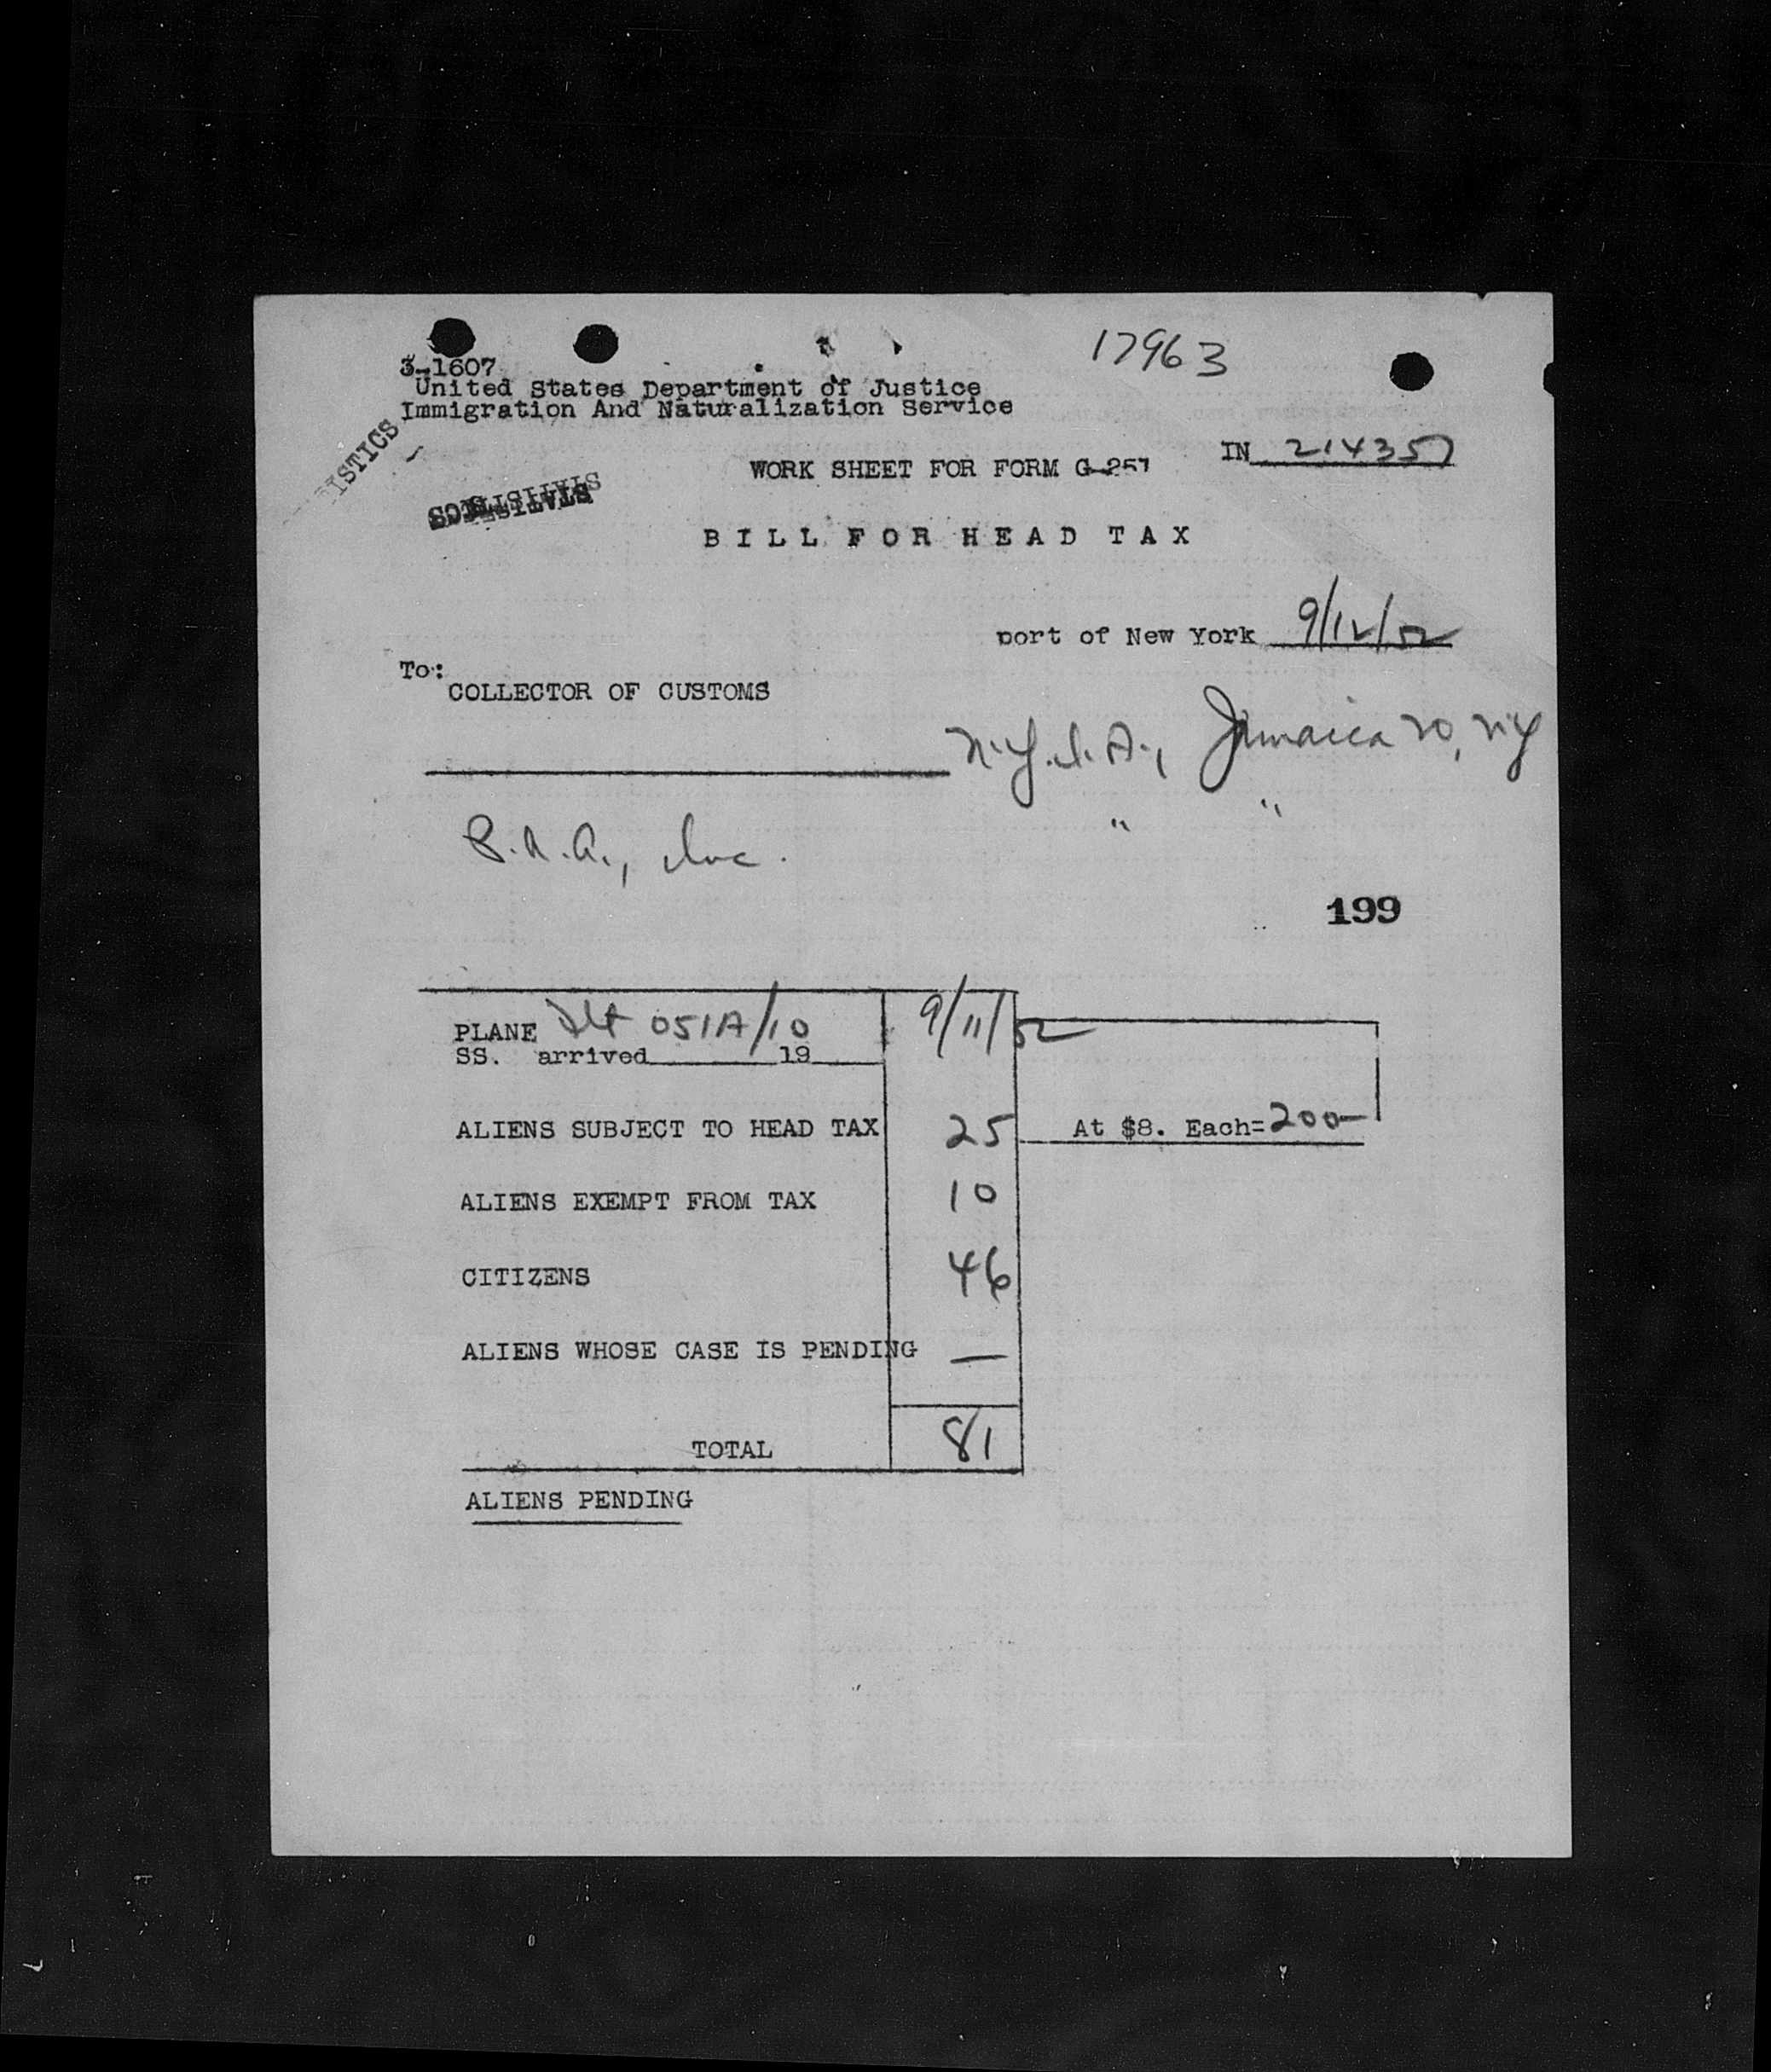 17963
3-1607
United States Department of Justice
Immigration And Naturalization Service
ISTICS
STATISTICS
WORK SHEET FOR FORM G-257
IN 214357
BILL FOR HEAD TAX
port of New York 9/12/52
To:
COLLECTOR OF CUSTOMS
N.Y.I.A., Jamaica 20, NY
" "
Inc.
199
PLANE Flt 051A/10 9/11/52
SS. arrived 19
ALIENS SUBJECT TO HEAD TAX 25 At $8. Each=200-
ALIENS EXEMPT FROM TAX 10
CITIZENS 46
ALIENS WHOSE CASE IS PENDING —
TOTAL 81
ALIENS PENDING